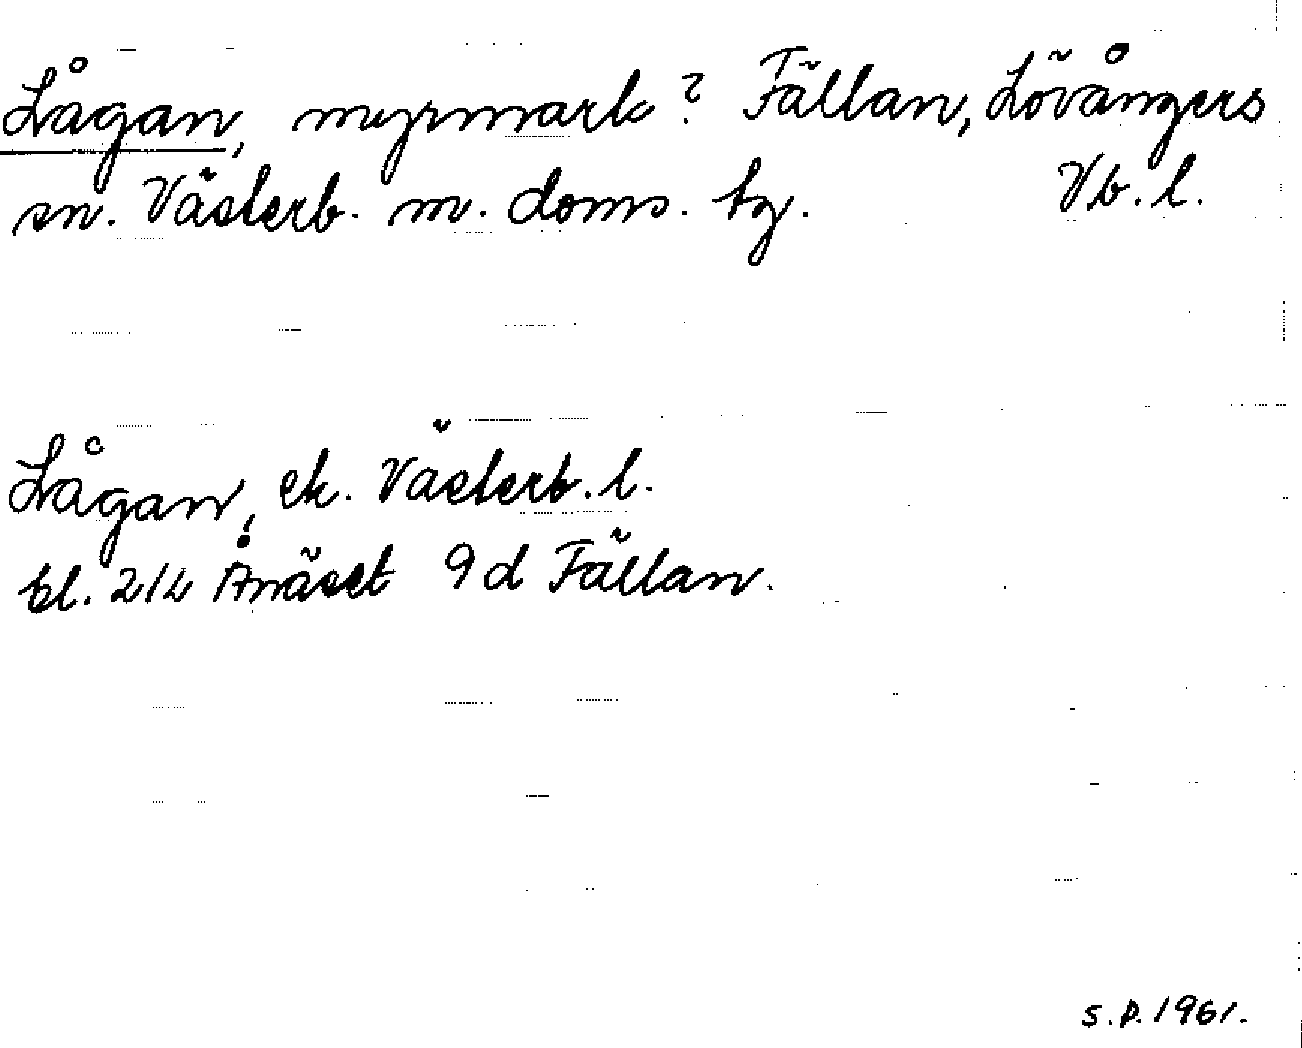 Lågan, myrmark? Fällan, Lövångers
sn. Västerb. m. doms. tg. Vb. l.
Lågan, ek. Västerb. l.
bl. 214 Ånäset 9d Fällan.
S.P. 1961.